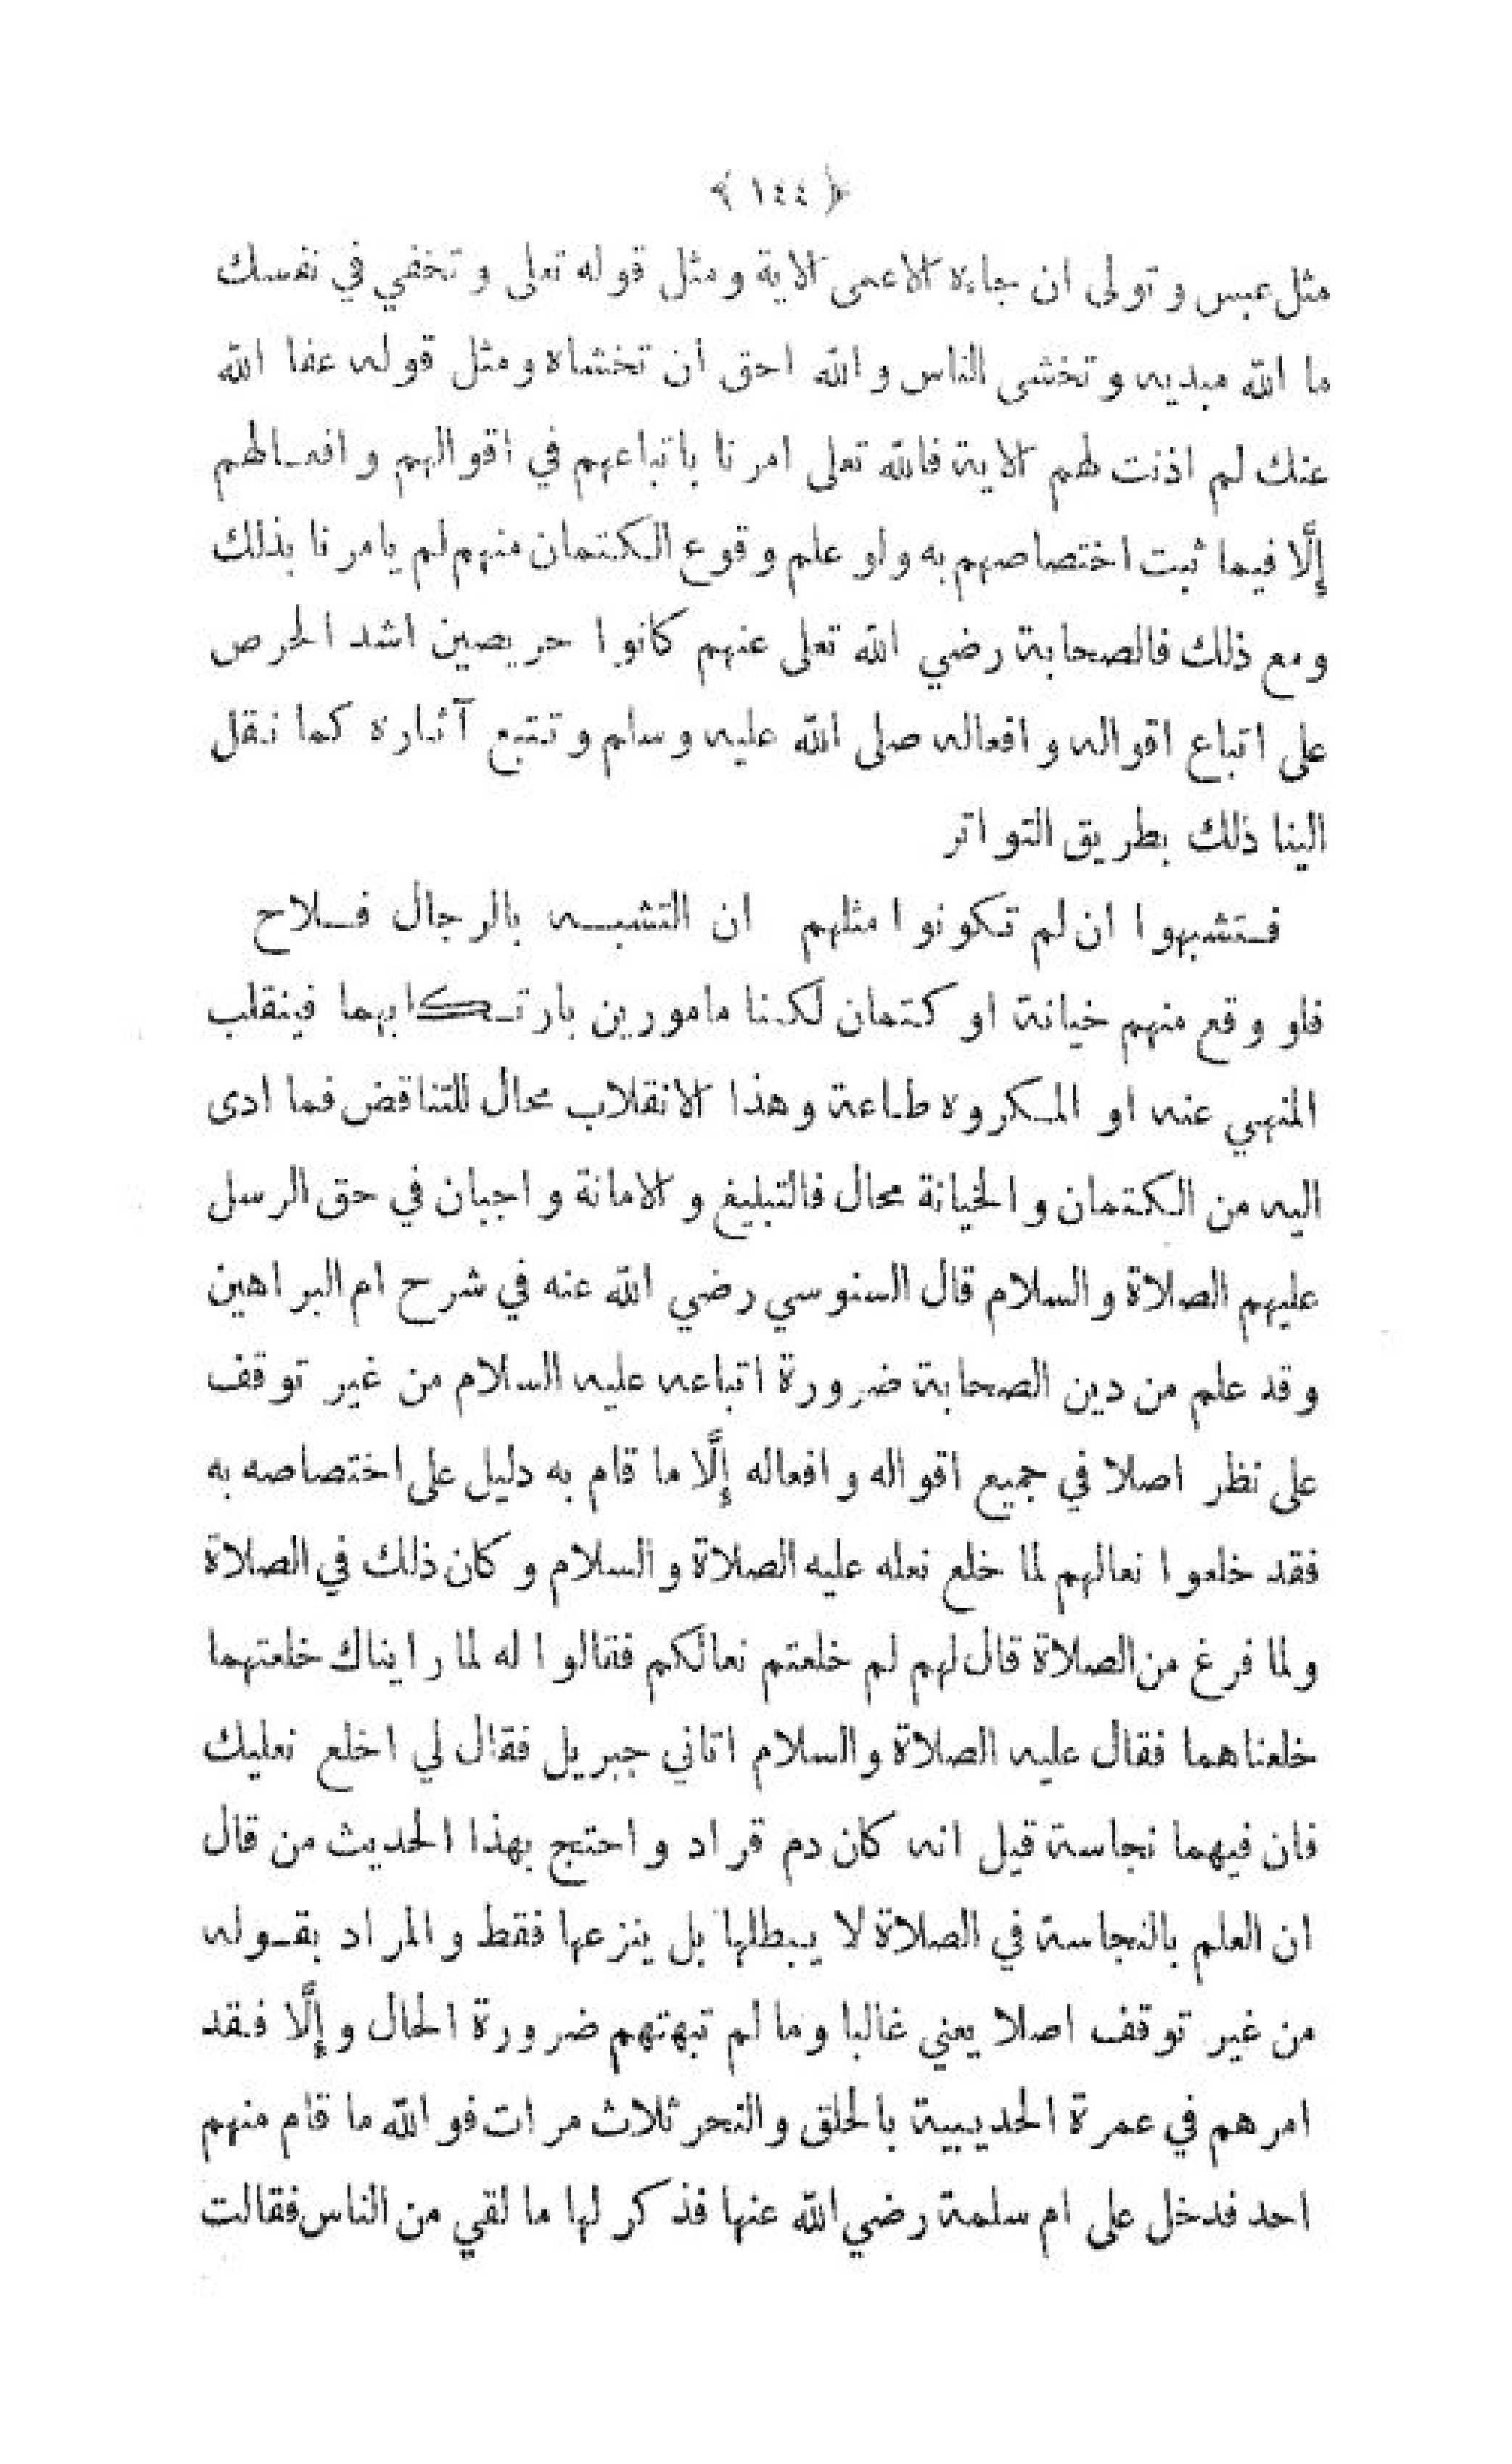 ﴿ ١٤٤ ﴾
مثل عبس وتولى ان جاءه الاعمى الاية ومثل قوله تعلى وتخفي في نفسك
ما الله مبديه وتخشى الناس والله احق ان تخشاه ومثل قوله عفا الله
عنك لم اذنت لهم الاية فالله تعلى امرنا باتباعهم في اقوالهم وافعالهم
إلَّا فيما ثبت اختصاصهم به ولو علم وقوع الكتمان منهم لم يامرنا بذلك
ومع ذلك فالصحابة رضي الله تعلى عنهم كانوا حريصين اشد الحرص
على اتباع اقواله وافعاله صلى الله عليه وسلم وتتبع آثاره كما نقل
الينا ذلك بطريق التواتر
فتشبهوا ان لم تكونوا مثلهم ان التشبه بالرجال فلاح
فلو وقع منهم خيانة او كتمان لكنا مامورين بارتكابهما فينقلب
المنهي عنه او المكروه طاعة وهذا الانقلاب محال للتناقض فما ادى
اليه من الكتمان والخيانة محال فالتبليغ والامانة واجبان في حق الرسل
عليهم الصلاة والسلام قال السنوسي رضي الله عنه في شرح ام البراهين
وقد علم من دين الصحابة ضرورة اتباعه عليه السلام من غير توقف
على نظر اصلا في جميع اقواله وافعاله إلَّا ما قام به دليل على اختصاصه به
فقد خلعوا نعالهم لما خلع نعله عليه الصلاة والسلام وكان ذلك في الصلاة
ولما فرغ من الصلاة قال لهم لم خلعتم نعالكم فقالوا له لما رايناك خلعتهما
خلعناهما فقال عليه الصلاة والسلام اتاني جبريل فقال لي اخلع نعليك
فان فيهما نجاسة قيل انه كان دم قراد واحتج بهذا الحديث من قال
ان العلم بالنجاسة في الصلاة لا يبطلها بل ينزعها فقط والمراد بقوله
من غير توقف اصلا يعني غالبا وما لم تبهتهم ضرورة الحال وإلَّا فقد
امرهم في عمرة الحديبية بالحلق والنحر ثلاث مرات فوالله ما قام منهم
احد فدخل على ام سلمة رضي الله عنها فذكر لها ما لقي من الناس فقالت